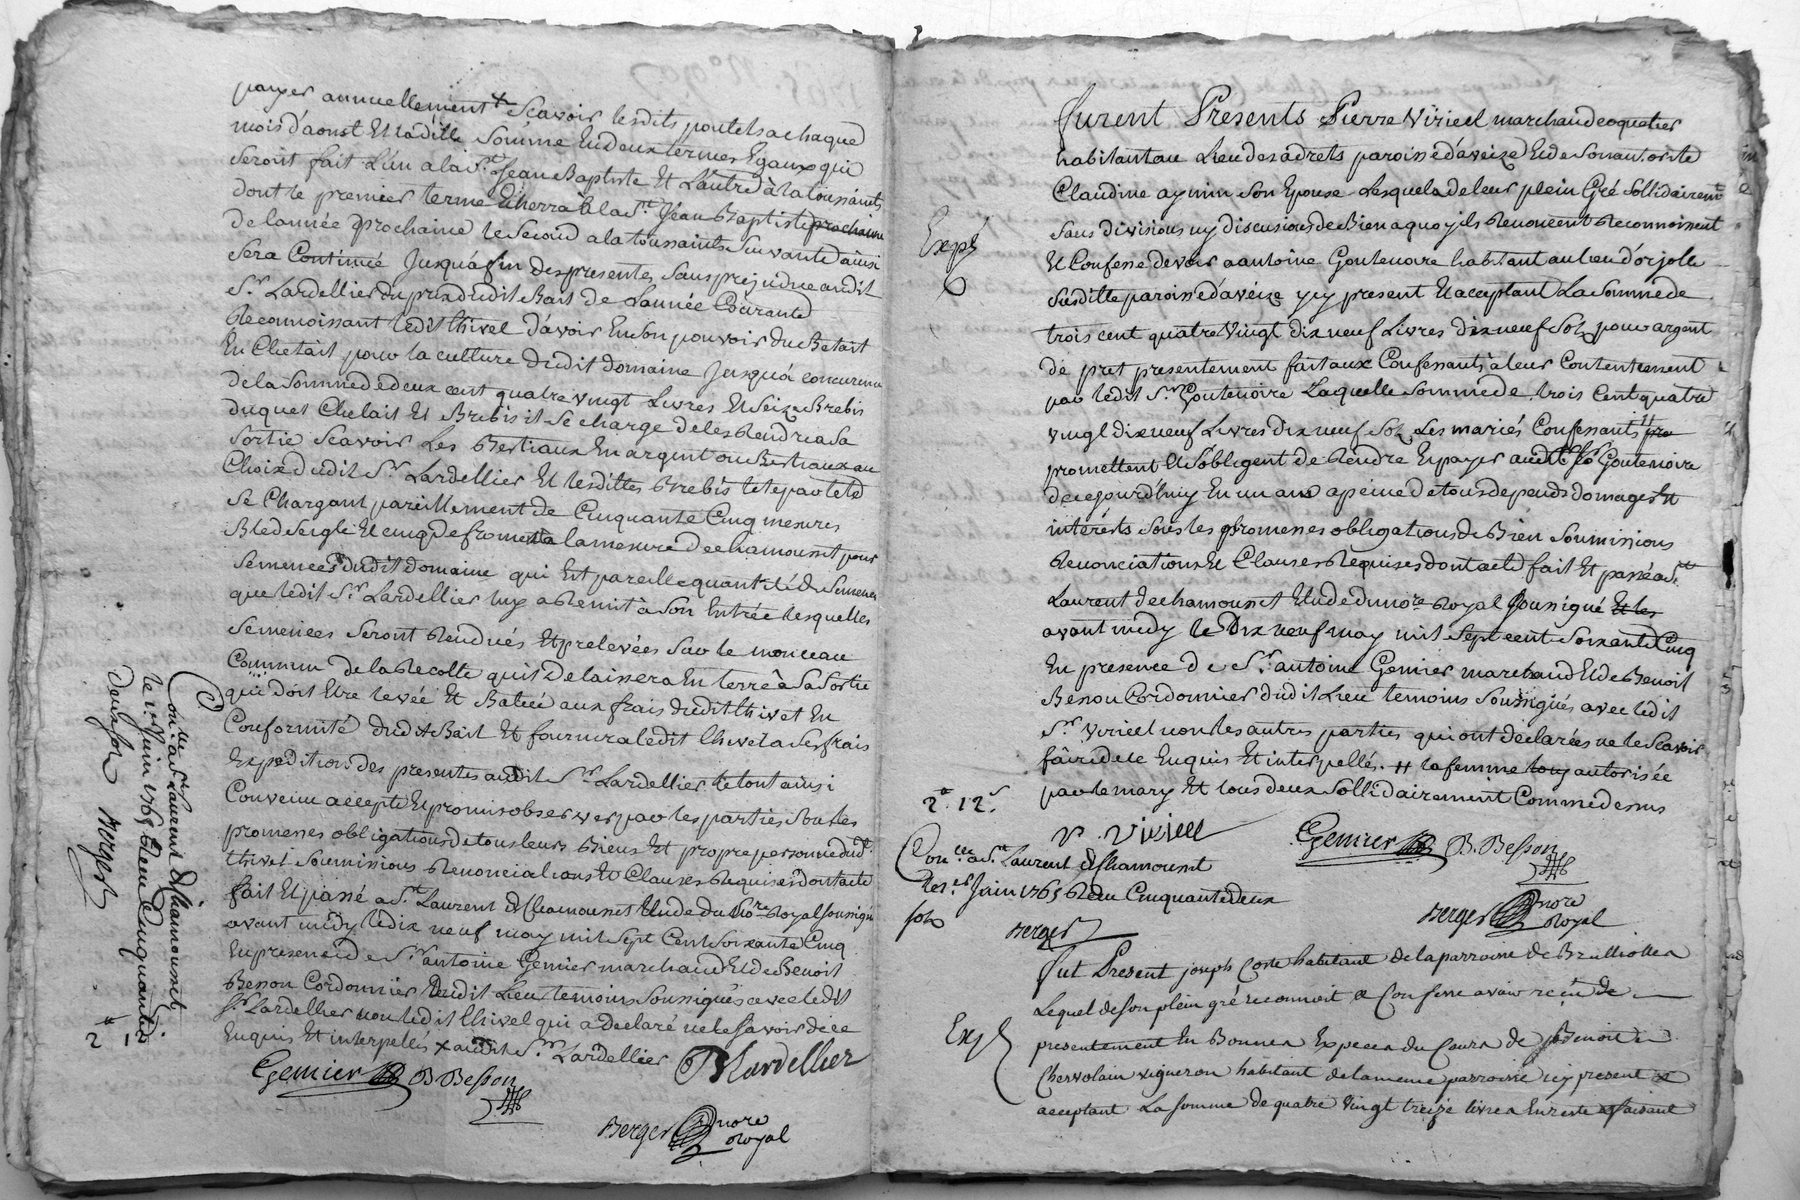 payer annuellement x Scavoir lesdits poulets a chaque
mois d'aoust Et laditte Somme En deux termes Egaux qui
Seront fait L'un a la St. Jean Baptiste Et L'autre à la toussaints
dont le premier terme Echerra à la St. Jean Baptiste prochaine
de lannée prochaine le Second a la toussaints Suivante ainsi
Sera Continüé Jusqu'a fin des presentes Sans prejudice audit
Sr. Lardellier du prix dudit Bail de Lannée Courante
Reconnoissant ledit thivel d'avoir En Son pouvoir du Betail
En Chetail pour la culture dudit domaine Jusqu'a concurence
de la Somme de deux cent quatre vingt Livres Et Seize Brebis
duquel Chetail Et Brebis il Se charge de les Rendre a Sa
Sortie Scavoir Les Bestiaux En argent ou Bestiaux au
Choix dudit Sr. Lardellier Et lesdittes Brebis tete par tete
Se Chargant pareillement de Cinquante Cinq mesures
Bled Seigle Et cinq de froment a la mesure de chamousset pour
Semences dudit domaine qui Est pareille quantité de Semences
que ledit Sr. Lardellier luy a Remit à Son Entrée lesquelles
Semences Seront Rendues Et prelevées Sur le monceau
Commun de la Recolte qu'il delaissera En terre à Sa Sortie
qui doit Etre levée Et Batüe aux frais dudit thivel En
Conformité dudit Bail Et fournira ledit thivel a Ses frais
Expedition des presentes audit Sr. Lardellier le tout ainsi
Convenu accepté Et promis observer par les parties Sous les
promesses obligations de tous leurs Biens Et propre personne dudt.
thivel Soumissions Renonciations Et Clauses Requises dont acte
fait Et passé a St. Laurent de Chamousset Etude du Nore. Royal Soussigné
avant midy le dix neuf may mil Sept Cent Soixante Cinq
En presence de Sr. antoine Gemier marchand Et de Benoit
Besson Cordonnier dudit Lieu temoins Soussignés avec ledit
Sr. Lardellier non ledit thivel qui a declaré ne le Savoir de ce
Enquis Et interpellés x audit Sr. Lardellier
B Lardellier
Gemier B. Besson
Berger nore
Royal
Conlle. a St. Laurent de Chamousset
le 1er. Juin 1765 Reçu Cinquante
deux sols Berger
2 12
furent Presents Pierre Viriell marchand coquetier
habitant au Lieu des adrets paroisse d'aveize Et de Son autorité
Claudine aymin Son Epouse Lesquels de leur plein Gré Sollidairemt.
Sans divisions ny discusions de Bien a quoy ils Renoncent Reconnoissent
Et Confesse devoir a antoine Goutenoire habitant au lieu d'orjolle
Susditte paroisse d'aveize icy present Et acceptant La Somme de
trois cent quatre vingt dix neuf Livres dix neuf Sols pour argent
de pret presentement fait aux Confessants à leur Contentement
par ledit Sr. Goutenoire Laquelle Somme de trois Cent quatre
vingt dix neuf Livres dix neuf Sols Les mariés Confessants #
promettent Et Soblegent de Rendre Et payer audit Sr Goutenoire
de cejourd'huy En un an apeine de tous depends domages Et
interêts Sous les promesses obligations de Bien Soumissions
Renonciations Et Clauses Requises dont acte fait Et passé a St.
Laurent de chamousset Etude du nore. Royal Soussigné Et les
avant midy le Dix neuf may mil Sept cent Soixante Cinq
En presence de Sr. antoine Gemier marchand Et de Benoit
Besson Cordonnier dudit Lieu temoins Soussignés avec ledit
Sr. Viriell non les autres parties qui ont déclarées ne le Scavoir
faire de ce Enquis Et interpellés. # la femme autorisée
par le mary Et tous deux Sollidairement Comme dessus
Expé
2 . 12 s
P. Viriell Gemier B. Besson
Conlle. a St. Laurent de Chamousset
le 1er. Juin 1765 Reçu Cinquante deux
sols Berger
Berger nore
Royal
Fut Present joseph Coste habitant de la parroisse de Brullioles
Lequel de son plein gré reconnoit et Confesse avoir reçu de
presentement En Bonnes Especes du Cours de Benoit
Chervolain vigneron habitant de la meme parroisse icy present et
acceptant La somme de quatre vingt treize livres En reste et faisant
Expé